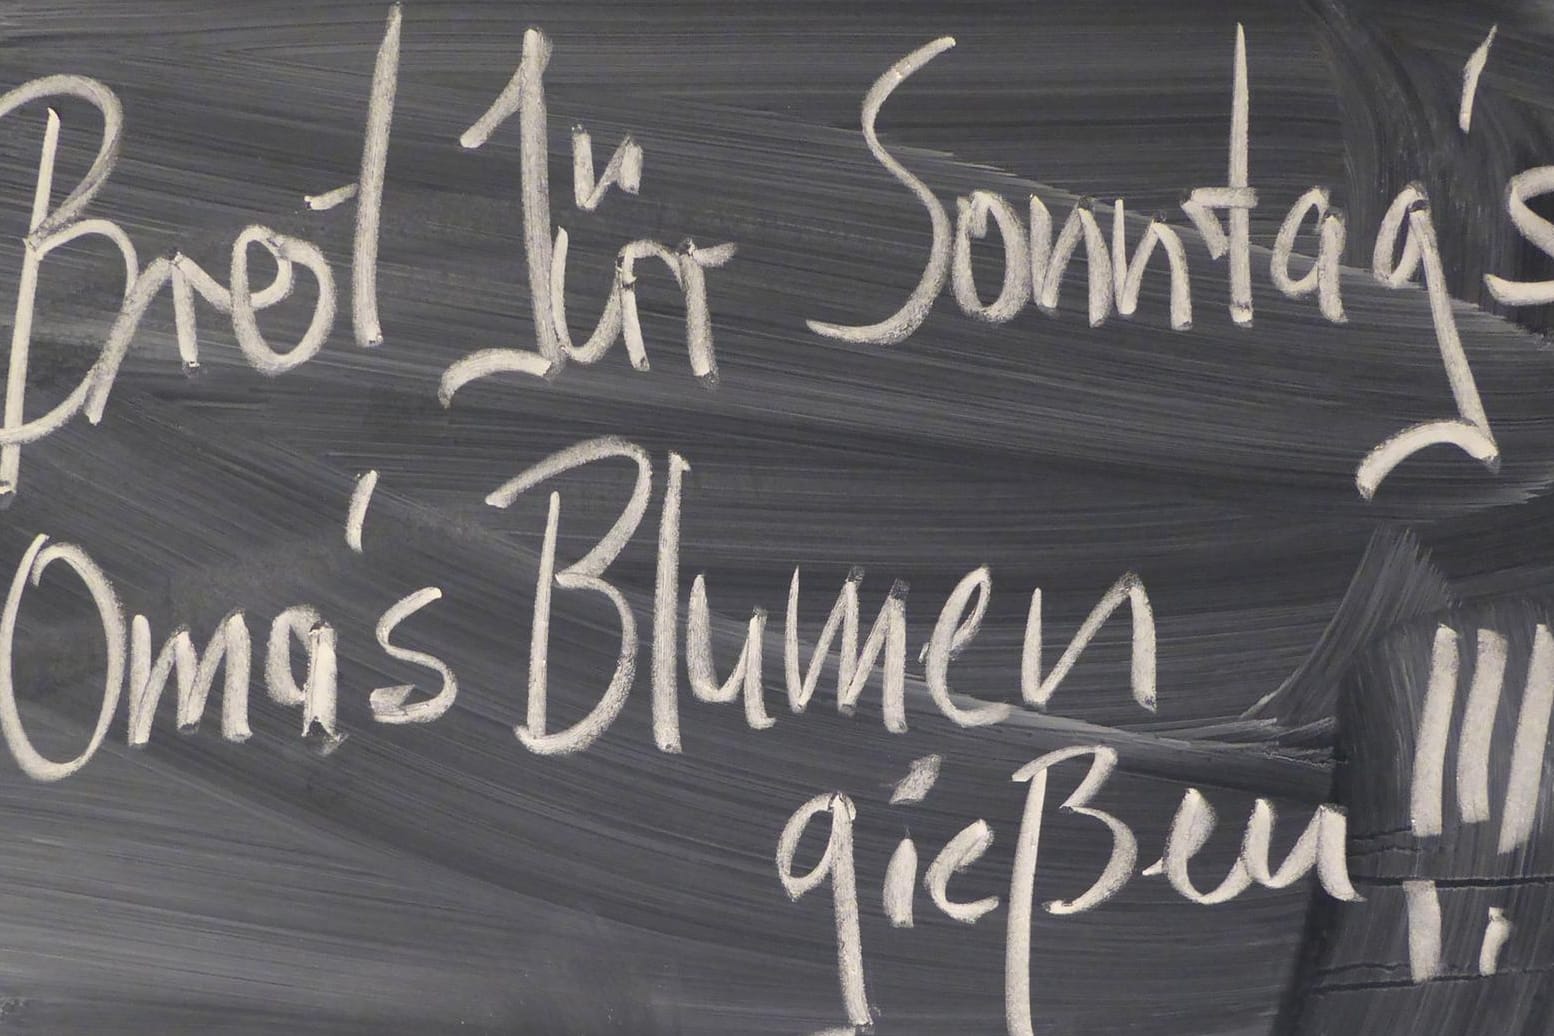 Brot für Sonntag's
Oma's Blumen
gießen !!!